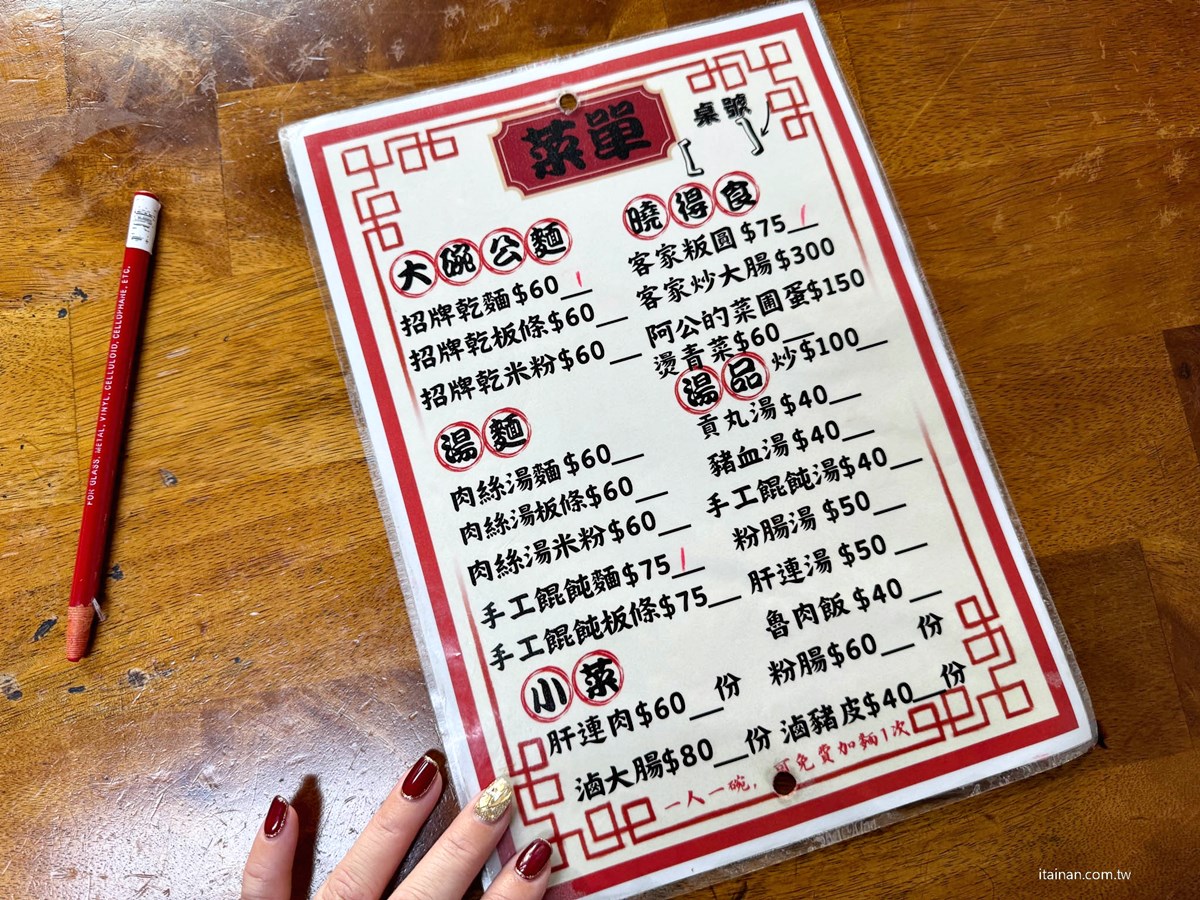 菜單
桌號
[ ]
大碗公麵
招牌乾麵$60__
招牌乾板條$60__
招牌乾米粉$60__
湯麵
肉絲湯麵$60__
肉絲湯板條$60__
肉絲湯米粉$60__
手工餛飩麵$75__
手工餛飩板條$75__
小菜
肝連肉$60__份
滷大腸$80__份
曉得食
客家粄圓$75__
客家炒大腸$300
阿公的菜圃蛋$150
燙青菜$60__
炒$100__
湯品
貢丸湯$40__
豬血湯$40__
手工餛飩湯$40__
粉腸湯 $50__
肝連湯 $50__
魯肉飯 $40__
粉腸$60__份
滷豬皮$40__份
一人一碗,可免費加麵1次
FOR GLASS, METAL, VINYL, CELLULOID, CELLOPHANE, ETC.
itainan.com.tw